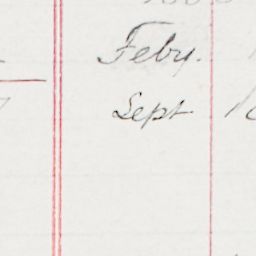 Feby.
Sept